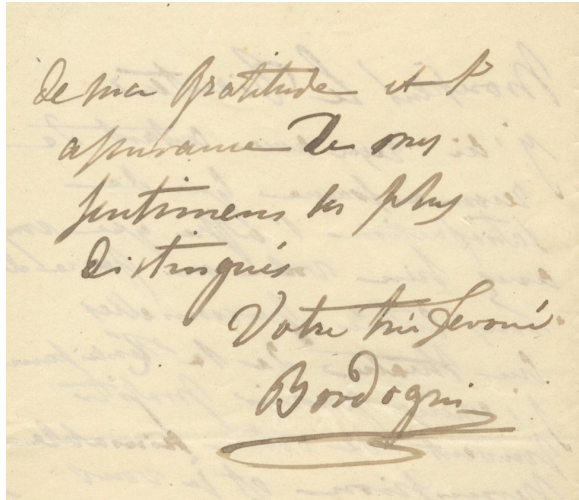 de ma gratitude et l'
assurance de mes
sentimens les plus
distingués
Votre très devoué
Bordogni